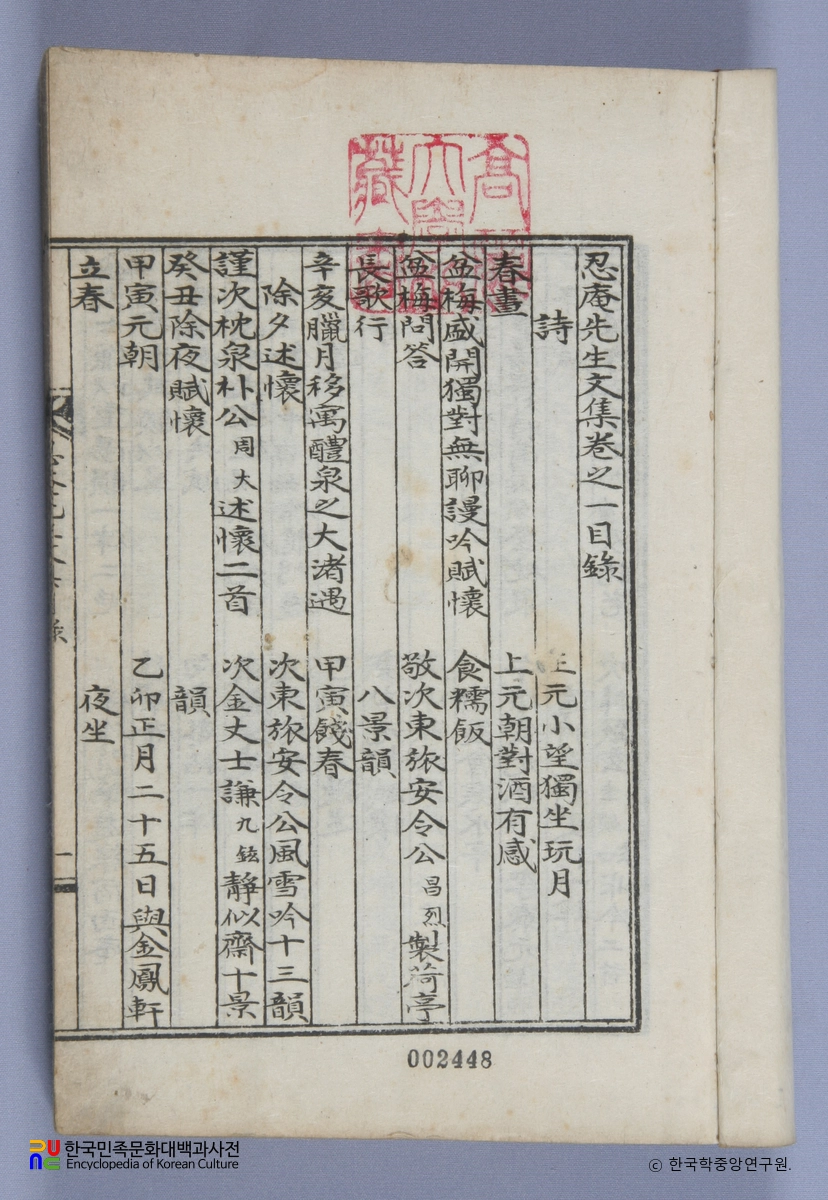 高麗
大學校
藏書
忍庵先生文集卷之一目錄
詩
春晝
盆梅盛開獨對無聊謾吟賦懷
盆梅問答
長歌行
辛亥臘月移寓醴泉之大渚遇
除夕述懷
謹次枕泉朴公周大述懷二首
癸丑除夜賦懷
甲寅元朝
立春
元小望獨坐玩月
上元朝對酒有感
食糯飯
敬次東旅安令公昌烈製荷亭
八景韻
甲寅餞春
次東旅安令公風雪吟十三韻
次金丈士謙九鉉靜似齋十景
韻
乙卯正月二十五日與金鳳軒
夜坐
一
002448
한국민족문화대백과사전
Encyclopedia of Korean Culture
© 한국학중앙연구원.